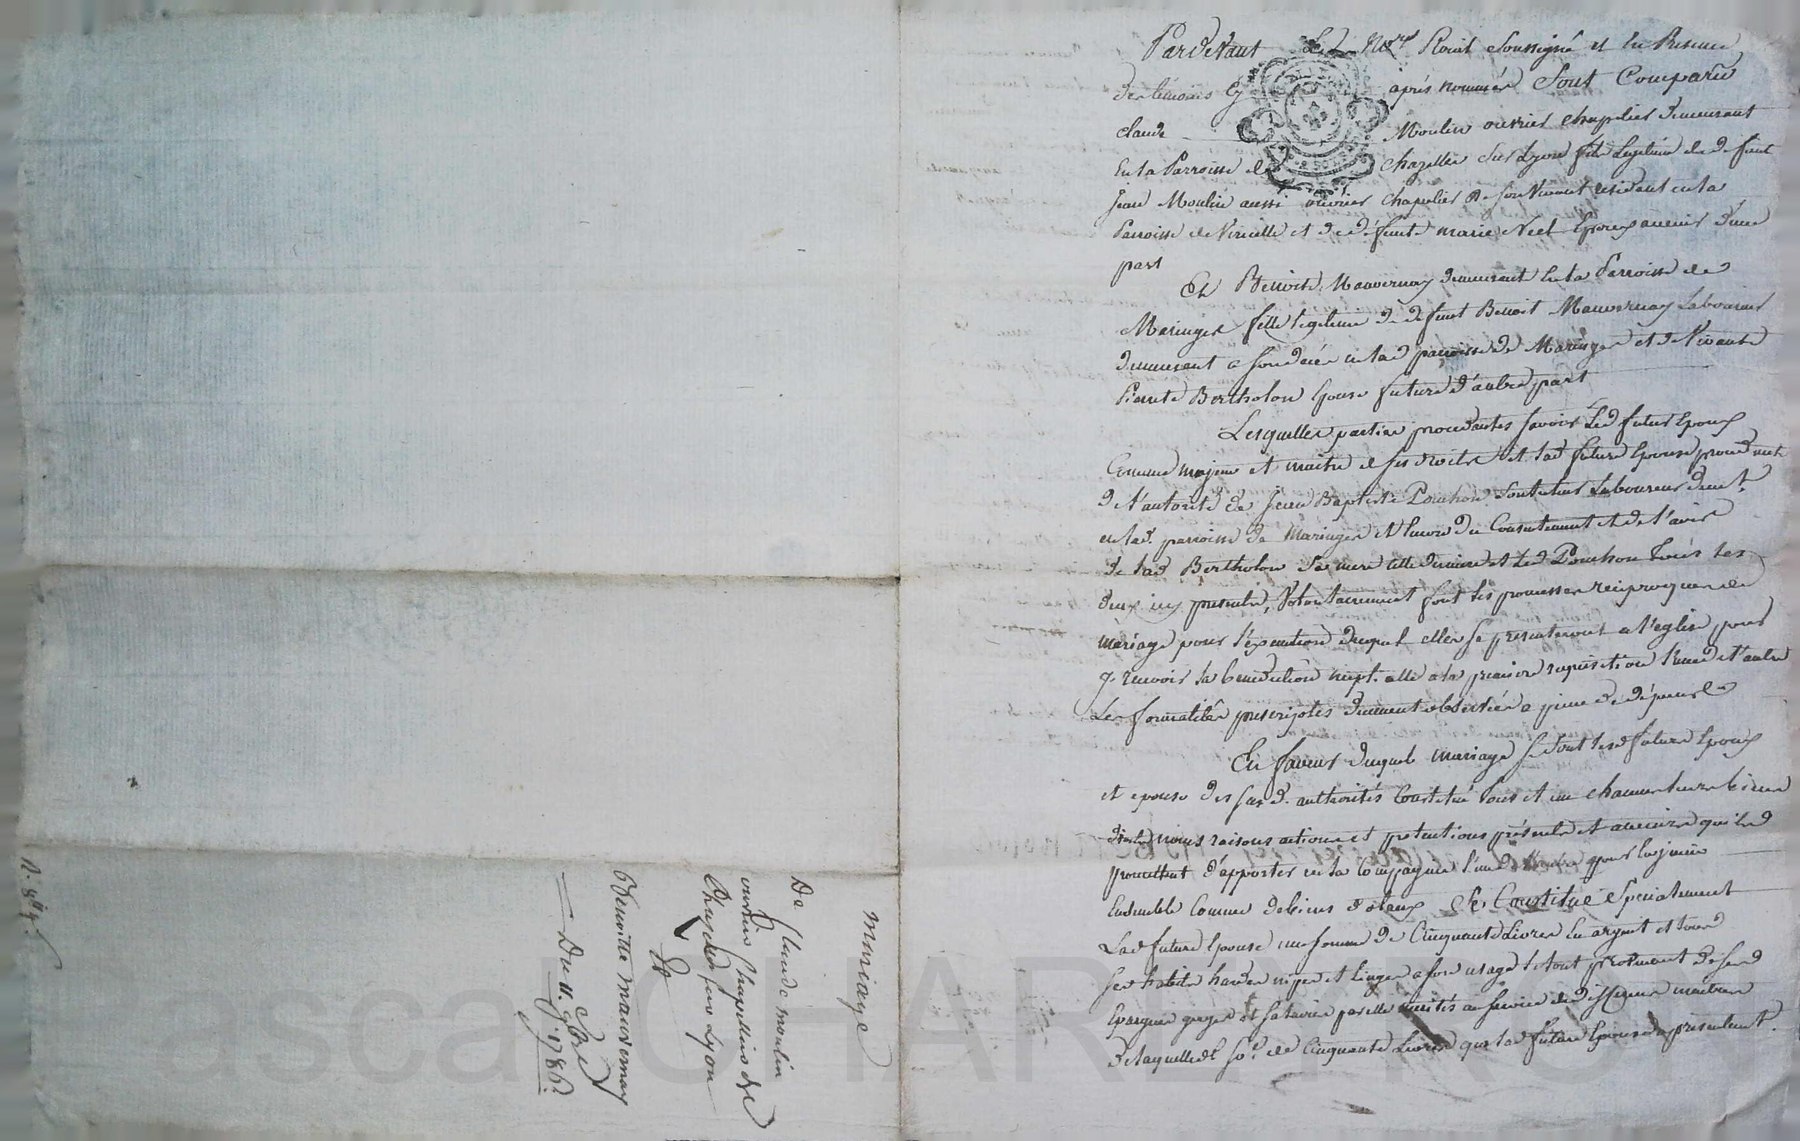 Pardevant Le No.re Roial Soussigné et En Presence
des temoins Cy après nommés Sont Comparu
claude Moulin ouvrier chapelier demeurant
En la Parroisse de Chazelles sur Lyon fils Legitime de defunt
Jean Moulin aussi ouvrier chapelier de son Vivant residant en la
Parroisse de Viricelle et de defunte marie Epoux avenir d'une
part
Et Benoite Mauvernay demeurant En la Parroisse de
Maringes fille legitime de defunt Benoit Mauvernay Laboureur
demeurant a son deces en lad parroisse de Maringes et de Vivante
Pierrette Bertholon Epouse future d'autre part
Lesquelles parties procedantes savoir Led futur Epoux
Comme majeur et maitre de ses droits et lad future Epouse procedante
de l'autorité de Jean Baptiste Ponchon Laboureur demt.
en lad. parroisse de Maringes et Encore du Consentement et de l'avis
de lad Bertholon Sa mere cette derniere et Led Ponchon tous les
deux icy presents, Volontairement font les promesses reciproques de
mariage pour l'execution duquel elles se presenteront a l'eglise pour
y recevoir la benediction nuptialle a la premiere requisition l'une de l'autre
Les formalités prescriptes duement observées a peine de depens
En faveur duquel mariage Se Sont lesd future Epoux
et epouse des susd. authorités Constitué tous et un chacun leurs biens
droits noms raisons actions et pretentions présents et avenirs quils
promettent d'apporter en la Compagnie l'un de l'autre pour En jouir
Ensemble Comme de biens dotaux Se Constitue Specialement
Lad future Epouse une somme de Cinquante Livres En argent et tous
Ses habits hardes nipes et linges a son usage le tout provenant de ses
Epargnes gages et salaires par elle merités au service de differens maitres
De laquelle de Cinquante Livres que lad future Epouse a presentement
mariage
De Claude moulin
ouvrier Chappellier de
Chazelles sur Lyon
Et
Benoitte mauvernay
Du 11. 1786.